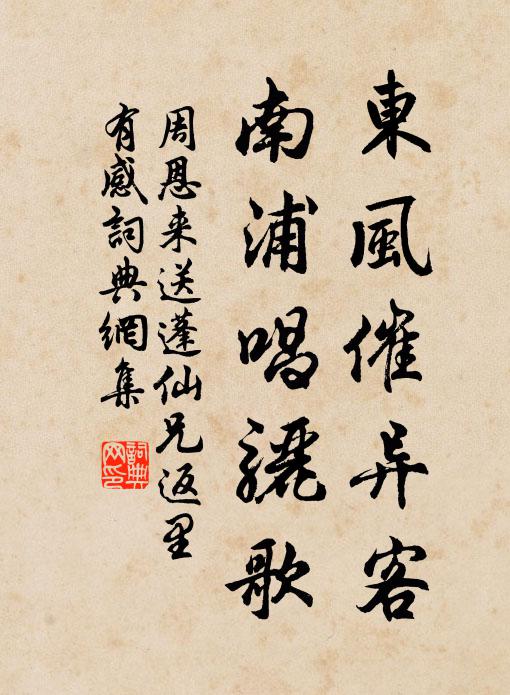 東風催异客
南浦唱驪歌
周恩来送蓬仙兄返里
有感詞典網集
詞典网印